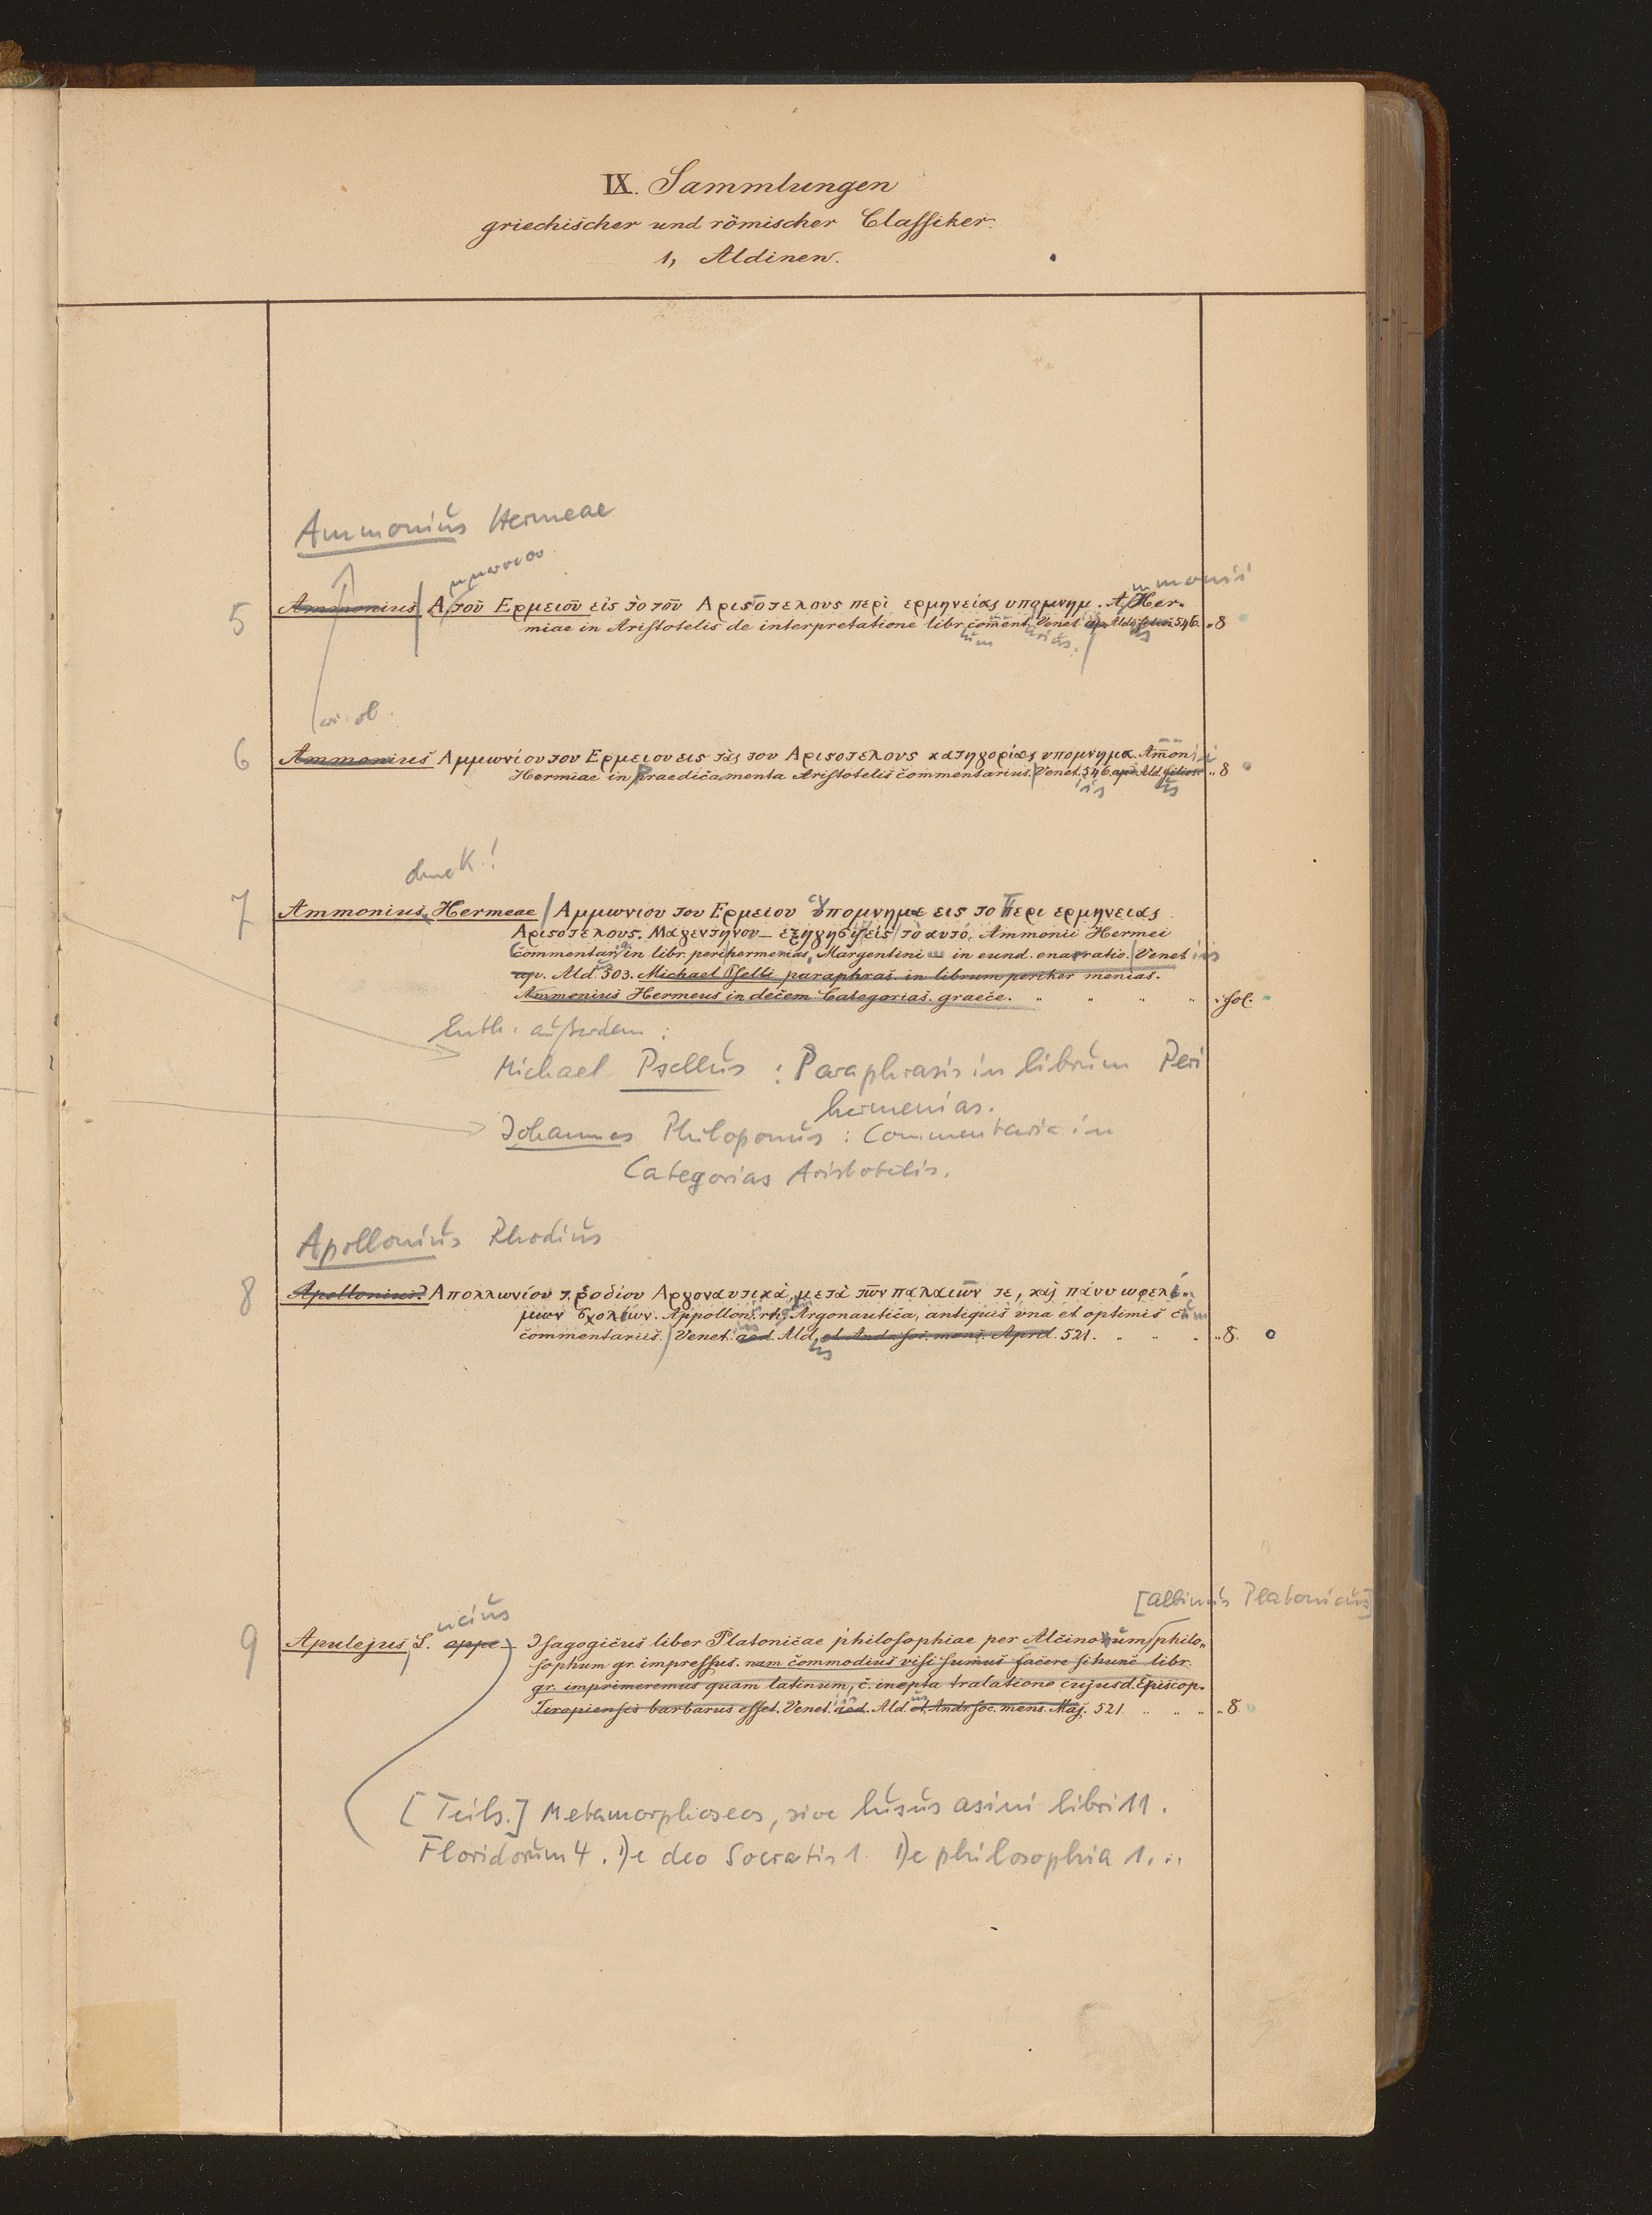 IX. Sammlungen
griechischer und römischer Classiker.
1, Aldinen.
Ammonius Hermeae
μμωνιου
mmonii
5 Ammonius Α, τοῦ Ερμειοῦ εἰς τὸ τοῦ Αριστοτελους περὶ ερμηνείας υπομνημ. A. Her-
miae in Aristotelis de interpretatione libr. com̄ent. Venet. ap. Ald. filios. 546. „8
w. ob.
6 Ammonius Αμμωνίου του Ερμειου εις τὰς του Αριστοτελους κατηγορίας υπομνημα. Am̄onii
Hermiae in Praedicamenta Aristotelis commentarius. Venet. 546. ap. Ald. filios. „8
7 Ammonius, Hermeae Αμμωνιου του Ερμειου Υπομνημα εις το Περι ερμηνειας
Αριστοτελους. Μαγεντηνου – εξηγησις εἰς τὸ αυτό. Ammonii Hermei
Commentaria in libr. perihermenias, Margentini in eund. enarratio. Venetiis
ap. Ald. 503. Michael Pselli paraphras. in librum periher menias.
Ammonius Hermeus in decem Categorias. graece. „ „ „ „ fol.
Enth. außerdem:
Michael Psellus : Paraphrasis in librum Peri
hermenias.
Johannes Philoponus : Commentaria in
Categorias Aristotelis.
Apollonius Rhodius
8 Apollonius. Απολλωνίου τ. ροδίου Αργοναυτικὰ, μετὰ τῶν παλαιῶν τε, καὶ πάνυ ωφελί-
μων σχολίων. Appollon. rh. Argonautica, antiquis una et optimis cum
commentariis. Venet. aed. Ald. et Andr. soc. mens. April. 521. „ „ „ „8.
[Albinus Platonicus]
ucius
9 Apulejus, L. appe – Isagogicus liber Platonicae philosophiae per Alcinoum philo-
sophum gr. impressus. nam commodius visi sumus facere si hunc libr.
gr. imprimeremus quam latinum, c. inepta tralatione cujusd. Episcop.
Tropiensis barbarus esset. Venet. aed. Ald. et Andr. soc. mens. Maj. 521. „ „ „ „8.
[Teils.] Metamorphoseos, sive lusus asini libri 11.
Floridorum 4. De deo Socratis 1. De philosophia 1. ..